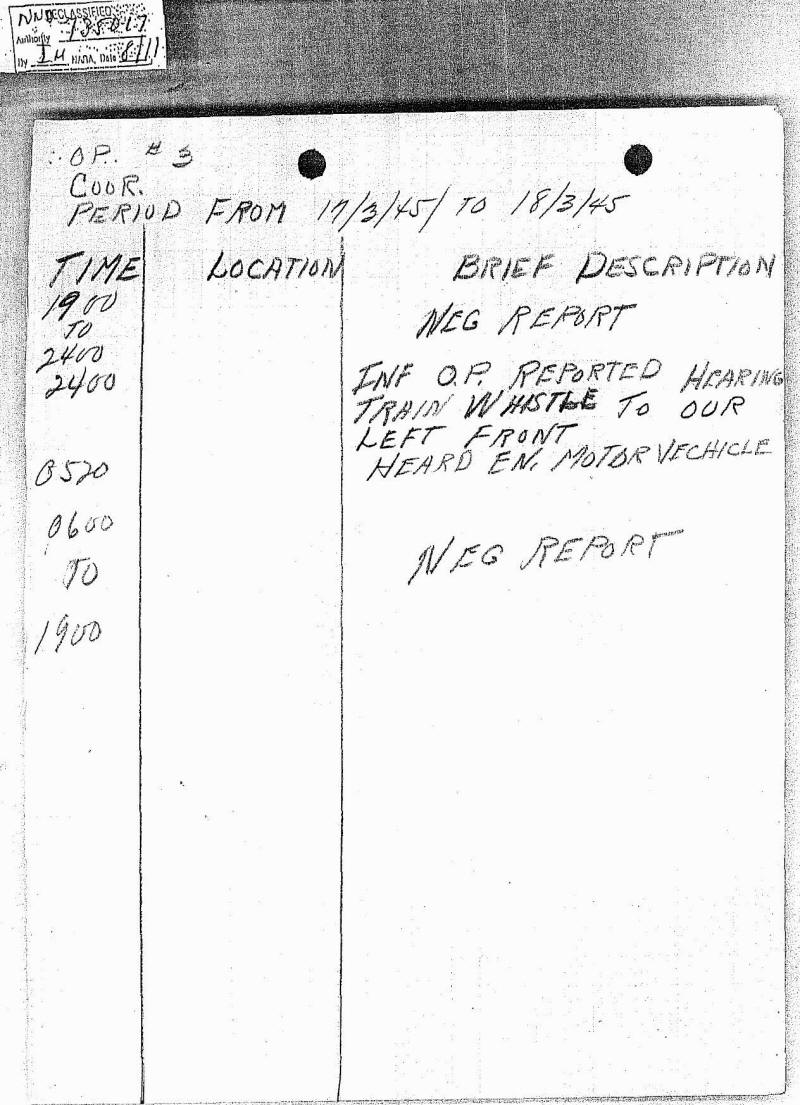 NND DECLASSIFIED
Authority 735017
By IH NARA, Date 8/11
O.P. # 3
COOR.
PERIOD FROM 17/3/45/ TO 18/3/45
TIME LOCATION BRIEF DESCRIPTION
1900
TO NEG REPORT
2400
2400 INF O.P. REPORTED HEARING
TRAIN WHISTLE TO OUR
LEFT FRONT
0520 HEARD EN. MOTOR VECHICLE
0600
TO NEG REPORT
1900